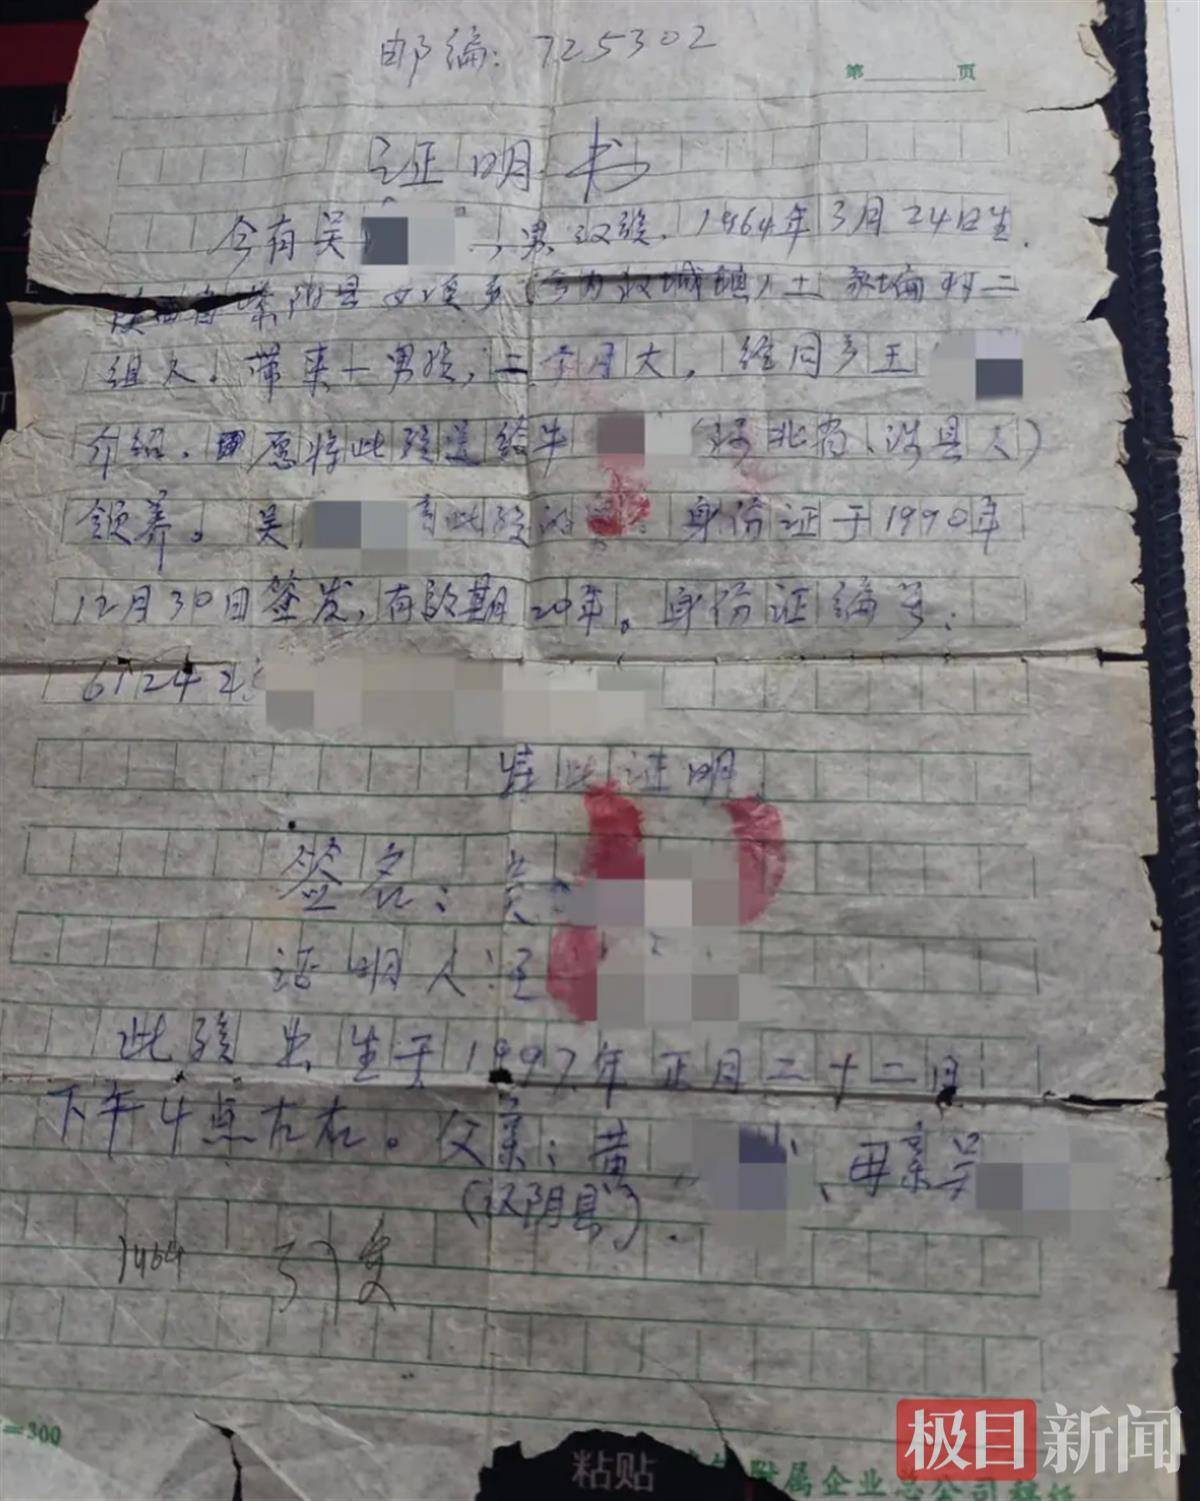 邮编：725302
第 页
证明书
今有吴 ，男汉族，1964年3月24日生，
紫阳县 乡（今为 城镇人士 村二
组人。带来一男孩，二个月大，经同乡王
介绍，愿将此孩送给牛 （河北省、涉县人）
领养。吴 此孩的 身份证于1990年
12月30日签发，有效期20年。身份证编号：
612423
特此证明
签名：吴
证明人：王
此孩出生于1997年正月二十二日
下午4点左右。父亲：黄 、母亲吴
（汉阴县）.
1464
=300
粘贴
附属企业总公司
极目新闻